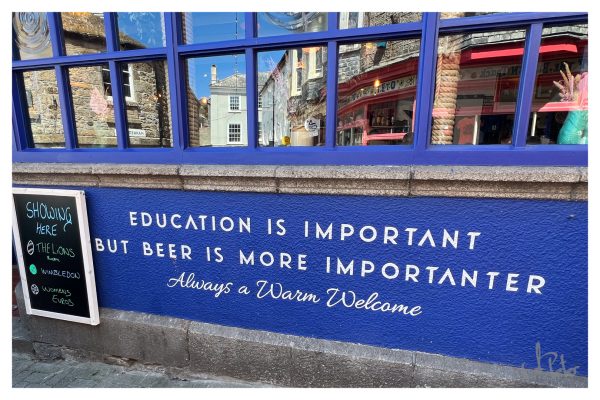 EDUCATION IS IMPORTANT
BUT BEER IS MORE IMPORTANTER
Always a Warm Welcome
SHOWING
HERE
THE LIONS
WIMBLEDON
WOMENS
EUROS